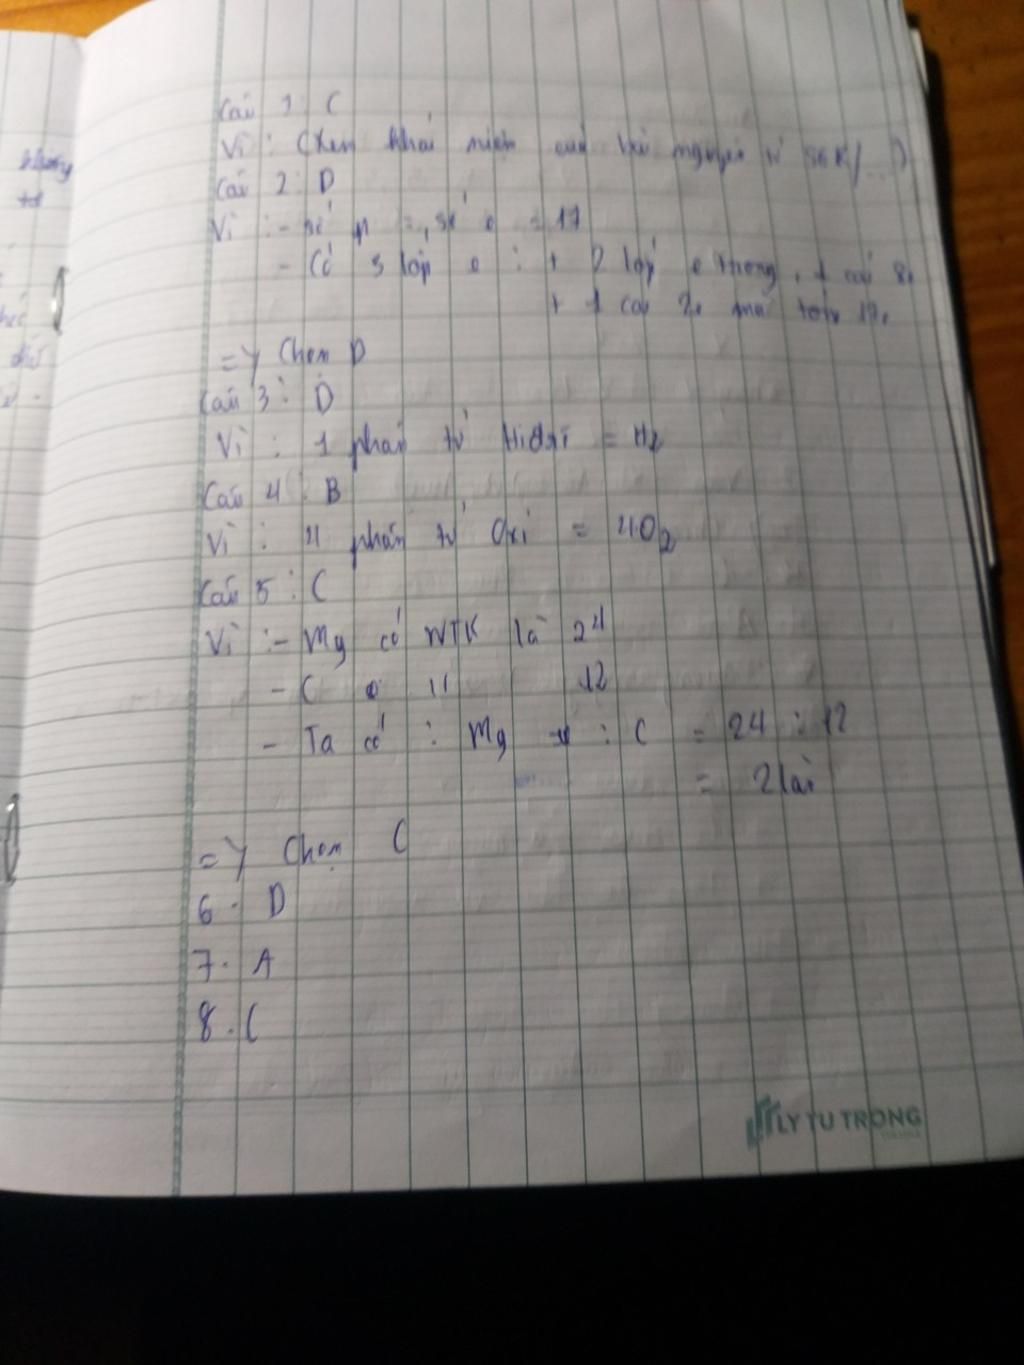 Câu 1: C
Vì: (Xem khái niệm của bài nguyên tử SGK/...)
Câu 2: D
Vì: - số p = số e = 17
- Có 3 lớp e: + 2 lớp e trong, 1 8e
+ 1 2e mà 17e
=> Chọn D
Câu 3: D
Vì: 1 phân tử Hiđrô = H2
Câu 4: B
Vì: 4 phân tử Oxi = 4O2
Câu 5: C
Vì: - Mg có NTK là 24
- C " 12
- Ta có: Mg : C = 24 : 12
= 2 lần
=> Chọn C
6. D
7. A
8. C
không
tử
LY TU TRONG